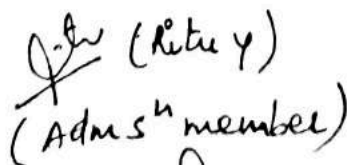 (Ritu Y)
(Admsn member)